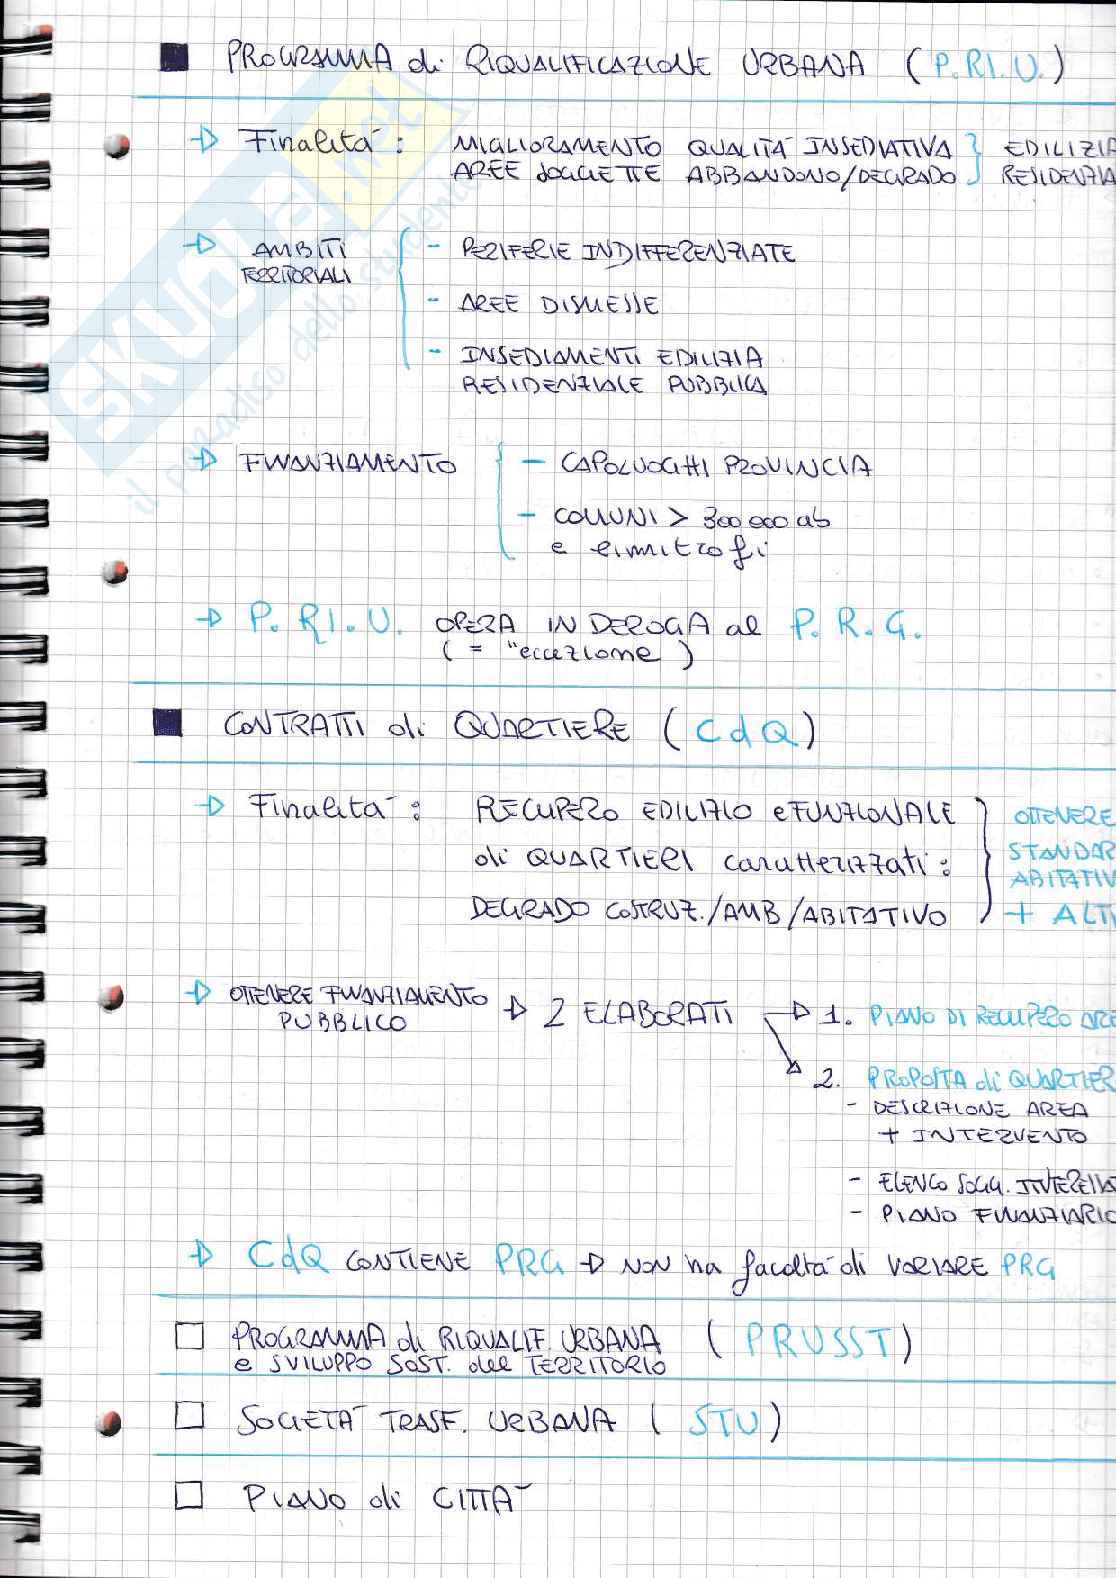 PROGRAMMA di RIQUALIFICAZIONE URBANA (P.RI.U.)
Finalità: MIGLIORAMENTO QUALITÀ INSEDIATIVA EDILIZIA
AREE SOGGETTE ABBANDONO/DEGRADO RESIDENZIA
AMBITI - PERIFERIE INDIFFERENZIATE
TERRITORIALI
- AREE DISMESSE
- INSEDIAMENTI EDILIZIA
RESIDENZIALE PUBBLICA
FINANZIAMENTO - CAPOLUOGHI PROVINCIA
- COMUNI > 300 000 ab
e limitrofi
P.RI.U. OPERA IN DEROGA al P.R.G.
( = "eccezione )
CONTRATTI di QUARTIERE (CdQ)
Finalità: RECUPERO EDILIZIO e FUNZIONALE OTTENERE
di QUARTIERI caratterizzati: STANDAR
ABITATIV
DEGRADO COSTRUZ./AMB/ABITATIVO + ALT
OTTENERE FINANZIAMENTO 2 ELABORATI 1. PIANO DI RECUPERO ARE
PUBBLICO
2. PROPOSTA di QUARTIER
- DESCRIZIONE AREA
+ INTERVENTO
- ELENCO SOGG. INTERESSA
- PIANO FINANZIARIO
CdQ CONTIENE PRG NON ha facoltà di VARIARE PRG
PROGRAMMA di RIQUALIF. URBANA (PRUSST)
e SVILUPPO SOST. del TERRITORIO
SOCIETÀ TRASF. URBANA (STU)
PIANO di CITTÀ
SKUOLA.net
il paradiso dello studente